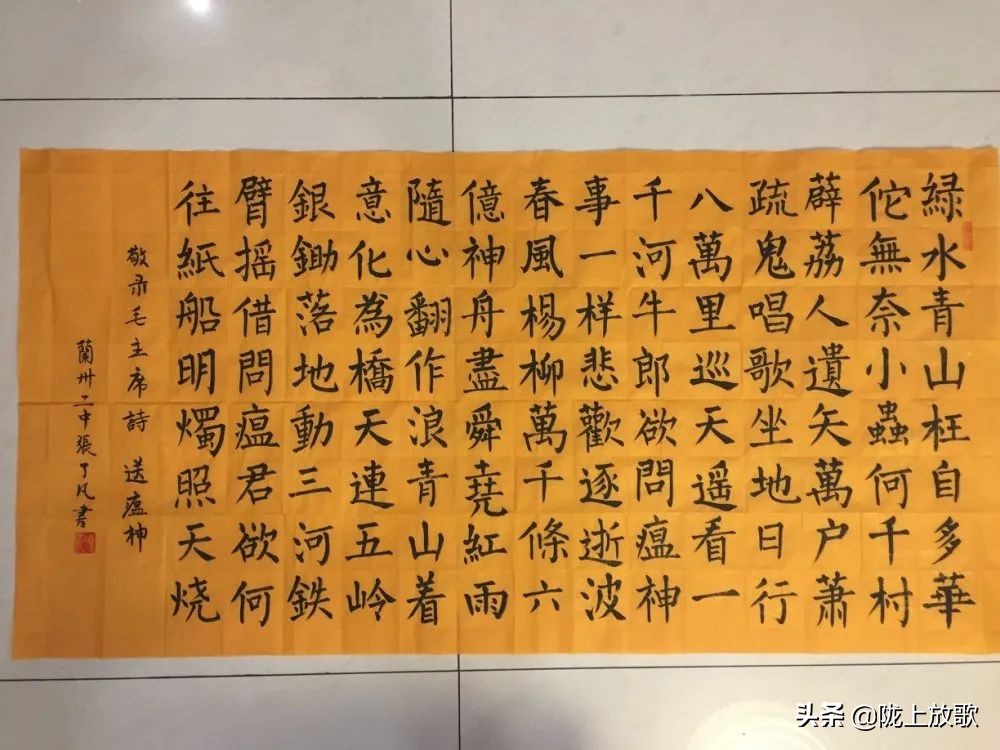 緑水青山枉自多華
佗無奈小蟲何千村
薜荔人遺矢萬户蕭
疏鬼唱歌坐地日行
八萬里巡天遥看一
千河牛郎欲問瘟神
事一样悲歡逐逝波
春風楊柳萬千條六
億神舟盡舜堯紅雨
隨心翻作浪青山着
意化為橋天連五岭
銀鋤落地動三河鉄
臂摇借問瘟君欲何
往紙船明燭照天烧
敬录毛主席詩 送瘟神
蘭州二中張了凡書
头条 @陇上放歌